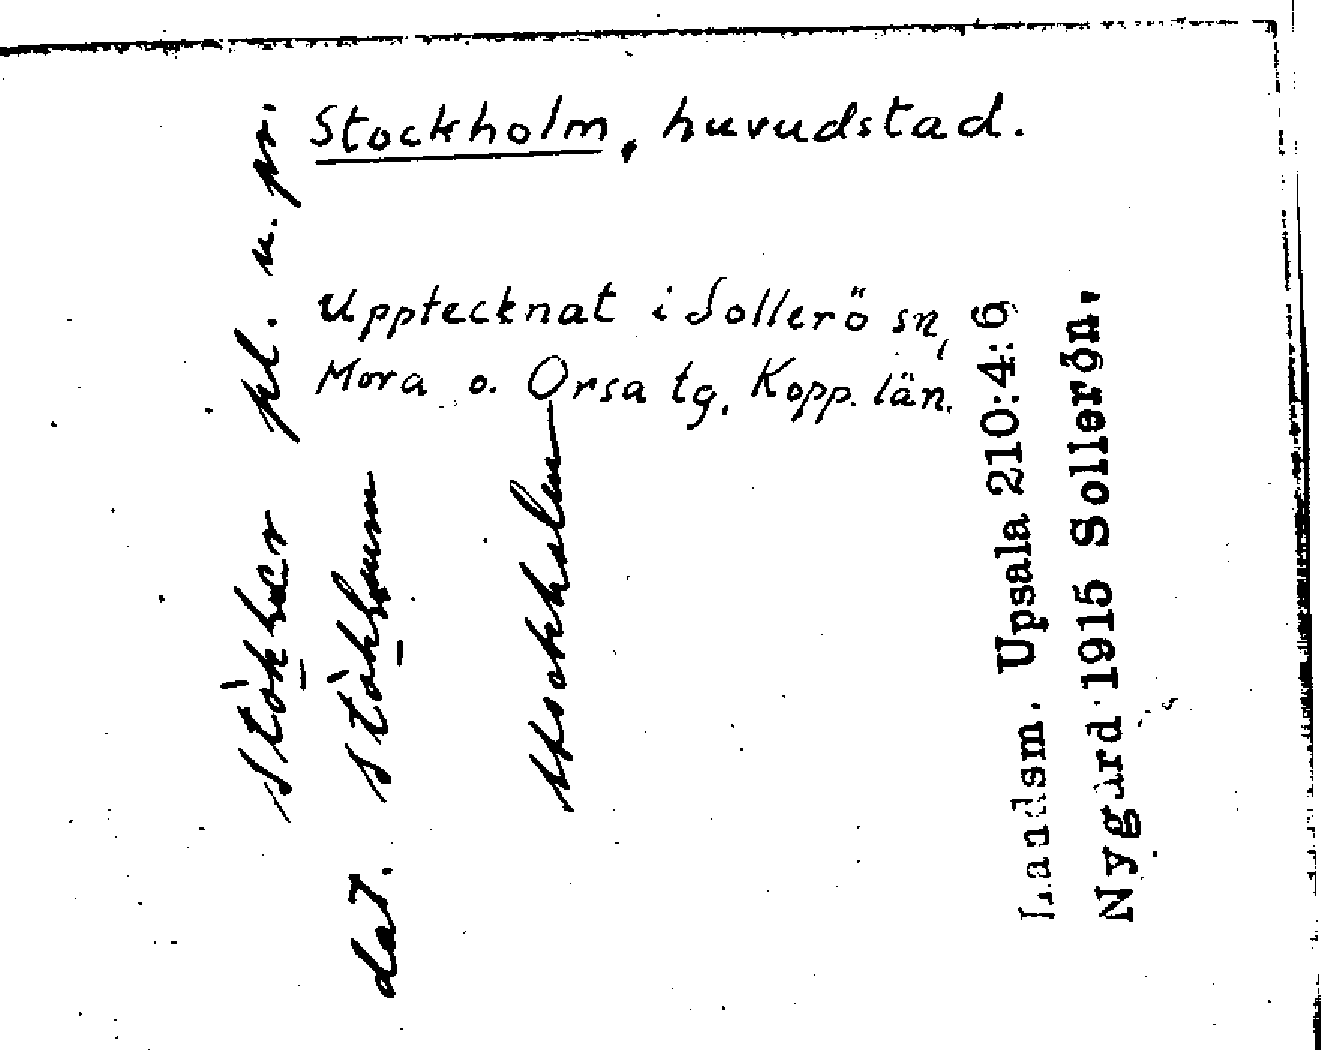 Stockholm, huvudstad.
Upptecknat i Sollerö sn,
Mora o. Orsa tg, Kopp. län.
pl. n. pr
dat.
Stockholm
Landsm. Upsala 210:4:6
Nygård 1915 Sollerön,